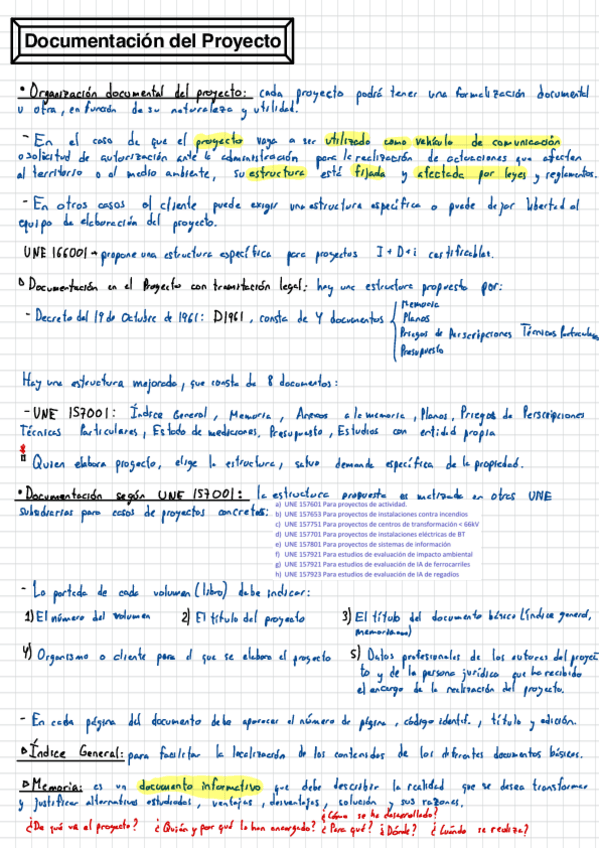 Documentación del Proyecto
• Organización documental del proyecto: cada proyecto podrá tener una formalización documental
u otra, en función de su naturaleza y utilidad.
- En el caso de que el proyecto vaya a ser utilizado como vehículo de comunicación
o solicitud de autorización ante la administración para la realización de actuaciones que afecten
al territorio o al medio ambiente, su estructura está fijada y afectada por leyes y reglamentos.
- En otros casos el cliente puede exigir una estructura específica o puede dejar libertad al
equipo de elaboración del proyecto.
UNE 166001 → propone una estructura específica para proyectos I+D+i certificables.
Documentación en el Proyecto con tramitación legal: hay una estructura propuesta por:
- Decreto del 19 de Octubre de 1961: D1961, consta de 4 documentos
Memoria
Planos
Priegos de Perscripciones Técnicas Particulares
Presupuesto
Hay una estructura mejorada, que consta de 8 documentos:
- UNE 157001: Índice General, Memoria, Anexos a la memoria, Planos, Priegos de Perscripciones
Técnicas Particulares, Estado de mediciones, Presupuesto, Estudios con entidad propia
Quien elabora proyecto, elige la estructura, salvo demanda específica de la propiedad.
• Documentación según UNE 157001: la estructura propuesta es matizada en otras UNE
subsidiarias para casos de proyectos concretos:
a) UNE 157601 Para proyectos de actividad.
b) UNE 157653 Para proyectos de Instalaciones contra incendios
c) UNE 157751 Para proyectos de centros de transformación < 66kV
d) UNE 157701 Para proyectos de instalaciones eléctricas de BT
e) UNE 157801 Para proyectos de sistemas de información
f) UNE 157921 Para estudios de evaluación de impacto ambiental
g) UNE 157921 Para estudios de evaluación de IA de ferrocarriles
h) UNE 157923 Para estudios de evaluación de IA de regadios
- La portada de cada volumen (libro) debe indicar:
1) El número del volumen 2) El título del proyecto 3) El título del documento básico (índice general,
memoria...)
4) Organismo o cliente para el que se elabora el proyecto 5) Datos profesionales de los autores del proyec
to y de la persona jurídica que ha recibido
el encargo de la realización del proyecto.
- En cada página del documento debe aparecer el número de página, código identif., título y edición.
Índice General: para facilitar la localización de los contenidos de los diferentes documentos básicos.
Memoria: es un documento informativo que debe describir la realidad que se desea transformar
y justificar alternativas estudiadas, ventajas, desventajas, solución y sus razones.
¿De qué va el proyecto? ¿Quién y por qué lo han encargado? ¿Cómo se ha desarrollado? ¿Para qué? ¿Dónde? ¿Cuándo se realiza?